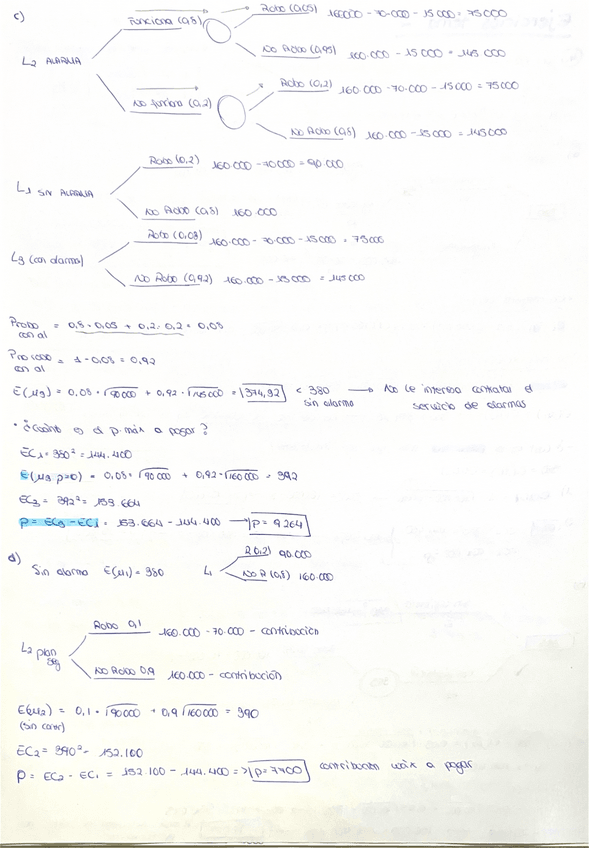 c)
Funciona (0,8)
Robo (0,05) 160000 - 70.000 - 15 000 = 75000
No Robo (0,95) 160.000 - 15 000 = 145 000
L2 ALARMA
No funciona (0,2)
Robo (0,2) 160.000 - 70.000 - 15000 = 75000
No Robo (0,8) 160.000 - 15.000 = 145000
L1 SIN ALARMA
Robo (0,2) 160.000 - 70000 = 90.000
No Robo (0,8) 160.000
L3 (con alarma)
Robo (0,08) 160.000 - 70.000 - 15000 = 75000
No Robo (0,92) 160.000 - 15.000 = 145000
Probo con al = 0,8 · 0,05 + 0,2 · 0,2 = 0,08
Pno robo con al = 1 - 0,08 = 0,92
E(μ3) = 0,08 · √90000 + 0,92 · √145000 = 374,32 < 380 sin alarma → No le interesa contratar el servicio de alarmas
* ¿Cuánto es el p. máx a pagar?
EC1 = 380² = 144.400
E(μ3 p=0) = 0,08 · √90 000 + 0,92 · √160 000 = 392
EC3 = 392² = 153.664
p = EC3 - EC1 = 153.664 - 144.400 → p = 9264
d)
Sin alarma E(μ1) = 380
L1
R (0,2) 90.000
No R (0,8) 160.000
L2 plan seg
Robo 0,1 160.000 - 70.000 - contribución
No Robo 0,9 160.000 - contribución
E(μ2) = 0,1 · √90000 + 0,9 √160000 = 390
(sin contr)
EC2 = 390² = 152.100
p = EC2 - EC1 = 152.100 - 144.400 => p = 7700 contribución máx a pagar